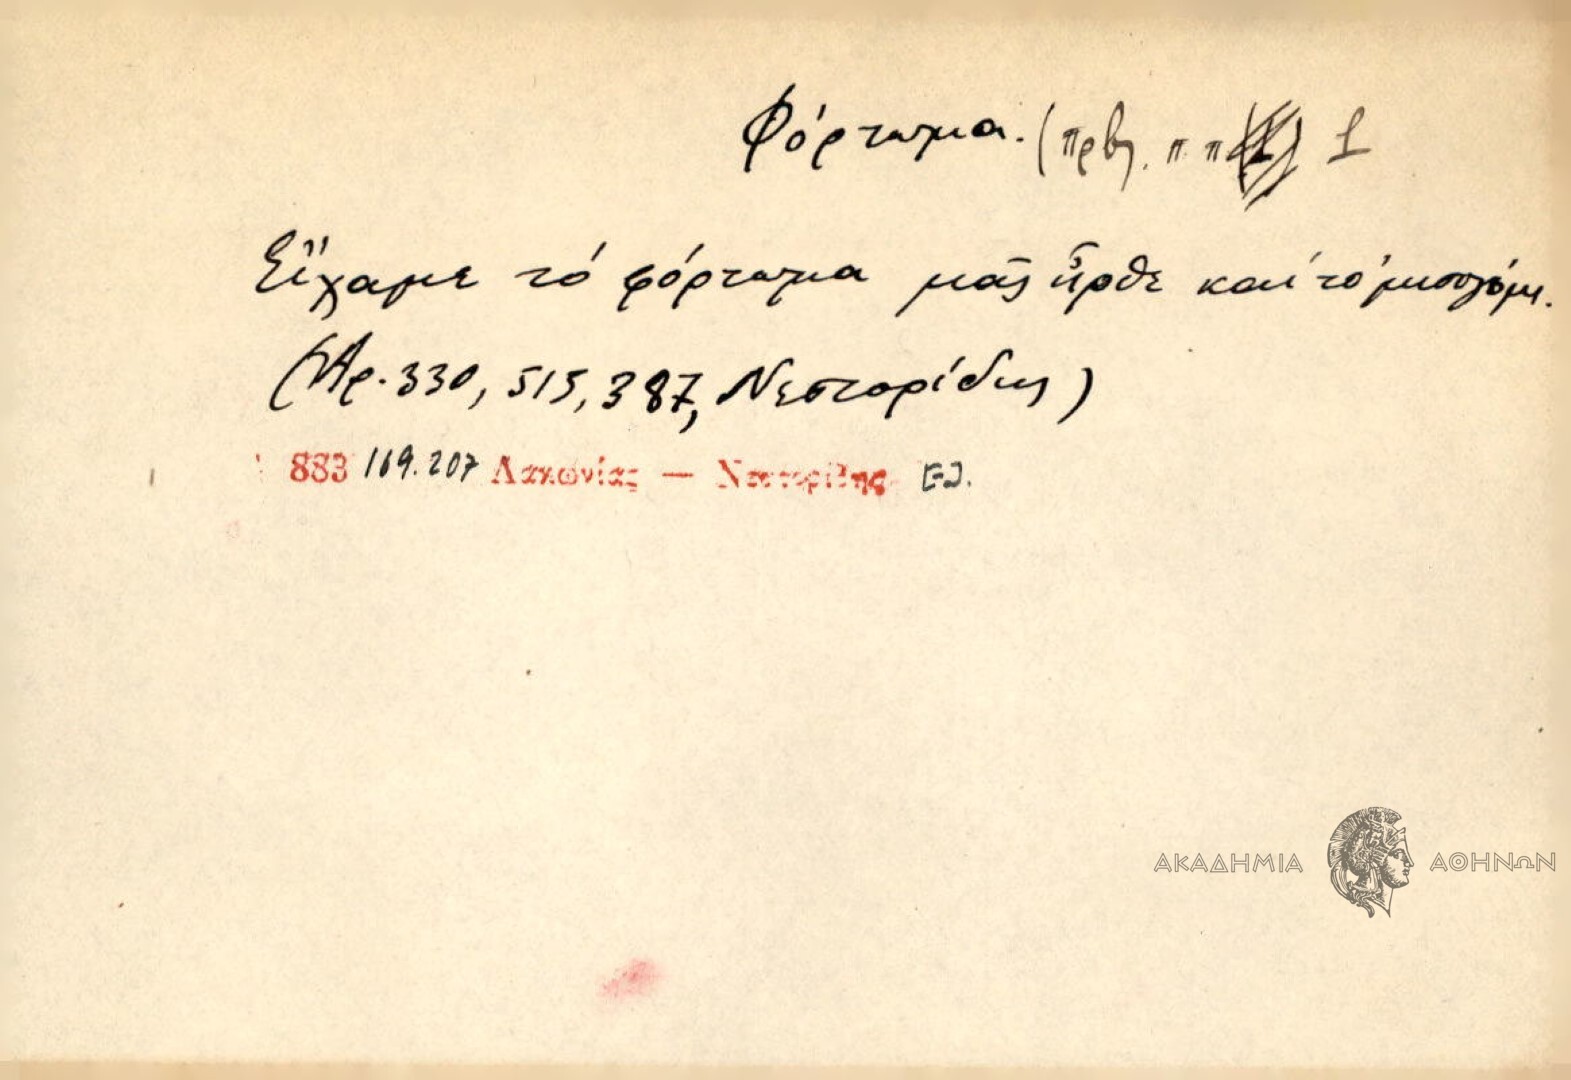 Φόρτωμα. (πρβλ. π π 1
Εἴχαμε τό φόρτωμα μᾶς ἦρθε καί τό μισογόμι.
(Ἀρ. 330, 515, 387, Νεστορίδης)
883 169.207 Λακωνίας — Νεστορίδης
ΑΚΑΔΗΜΙΑ ΑΘΗΝΩΝ